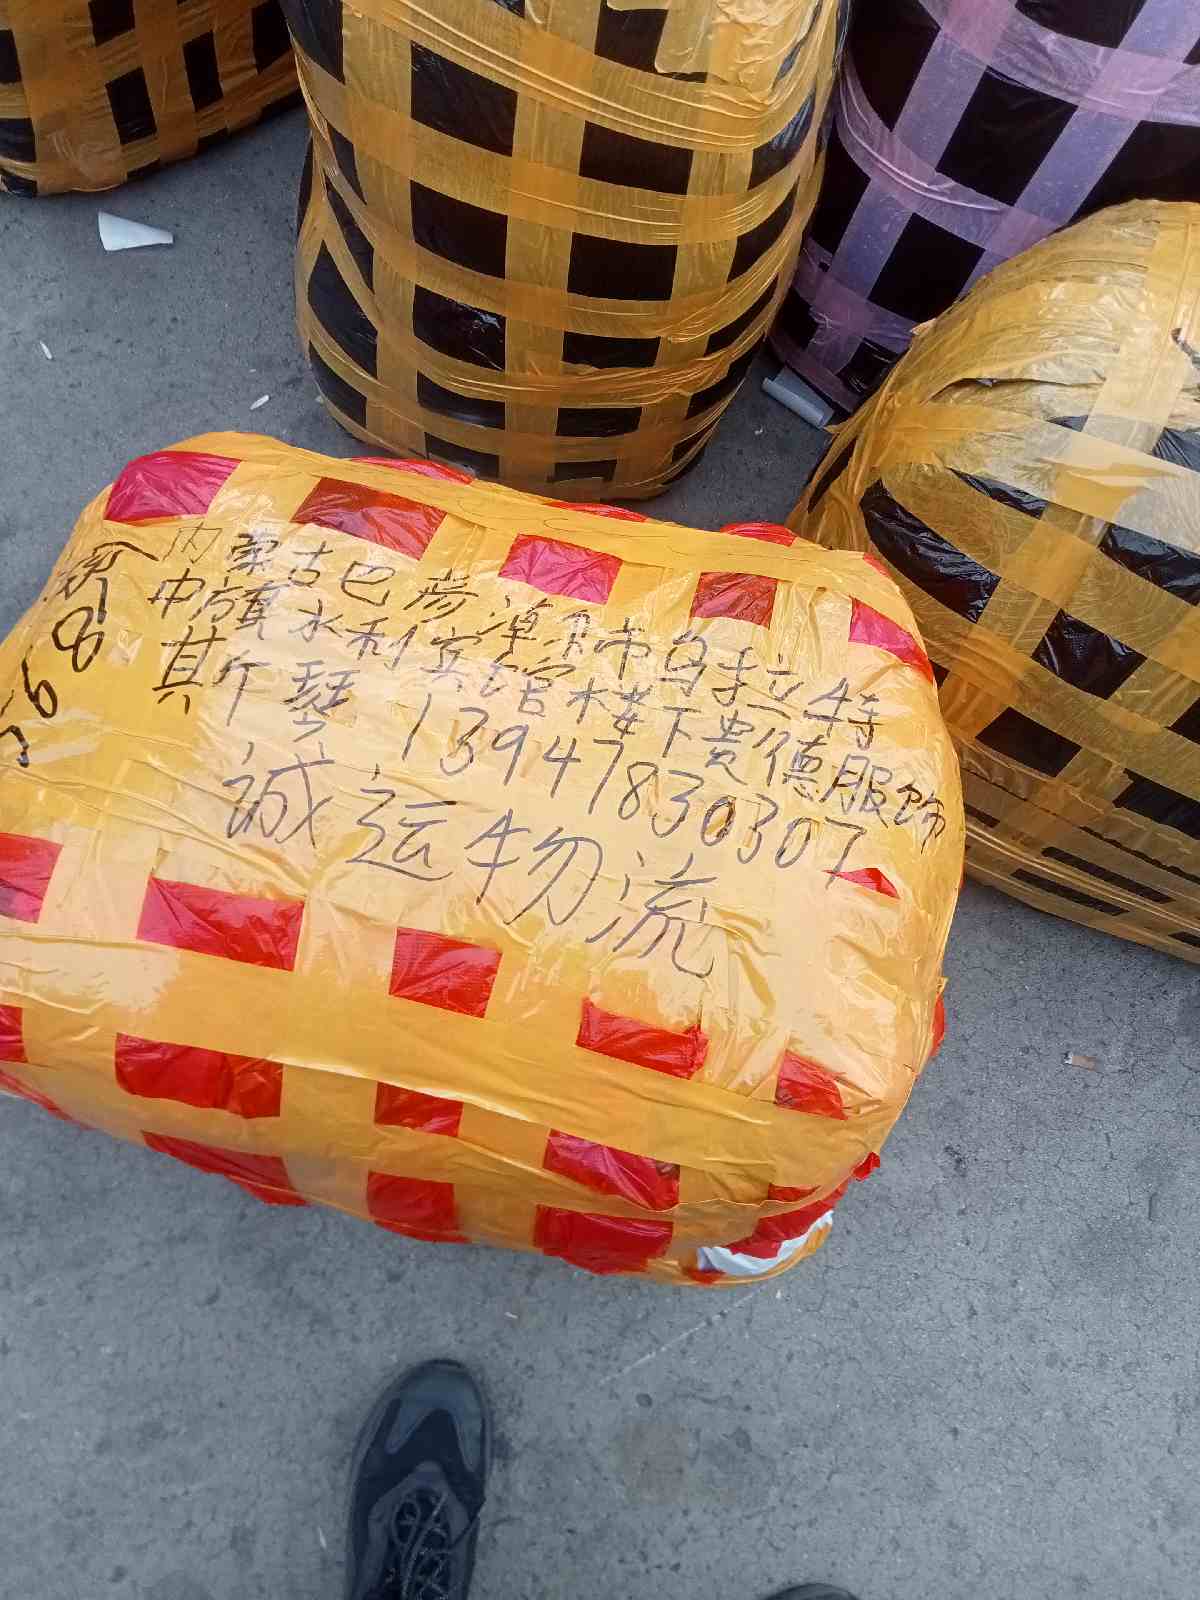 内蒙古巴彦淖尔市乌拉特
中旗水利宾馆楼下费德服饰
其个琴 13947830307
诚运物流
568